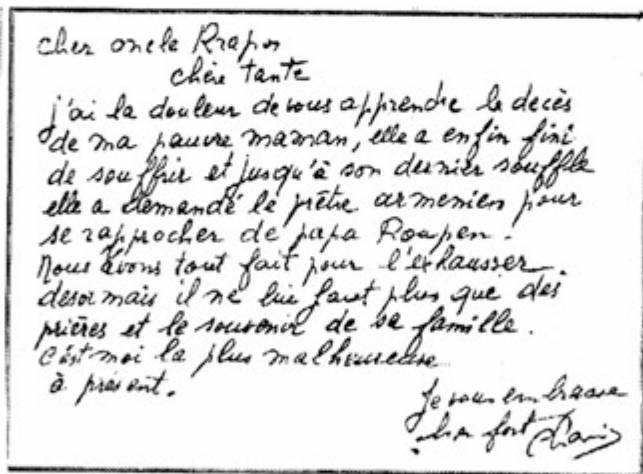 cher oncle
chère tante
j'ai la douleur de vous apprendre le decès
de ma pauvre maman, elle a enfin fini
de souffrir et jusqu'à son dernier souffle
elle a demandé le prêtre armenien pour
se rapprocher de papa Roupen.
Nous avons tout fait pour l'exhausser.
desormais il ne lui faut plus que des
prières et le souvenir de sa famille.
c'est moi la plus malheureuse
à présent.
Je vous embrasse
bien fort